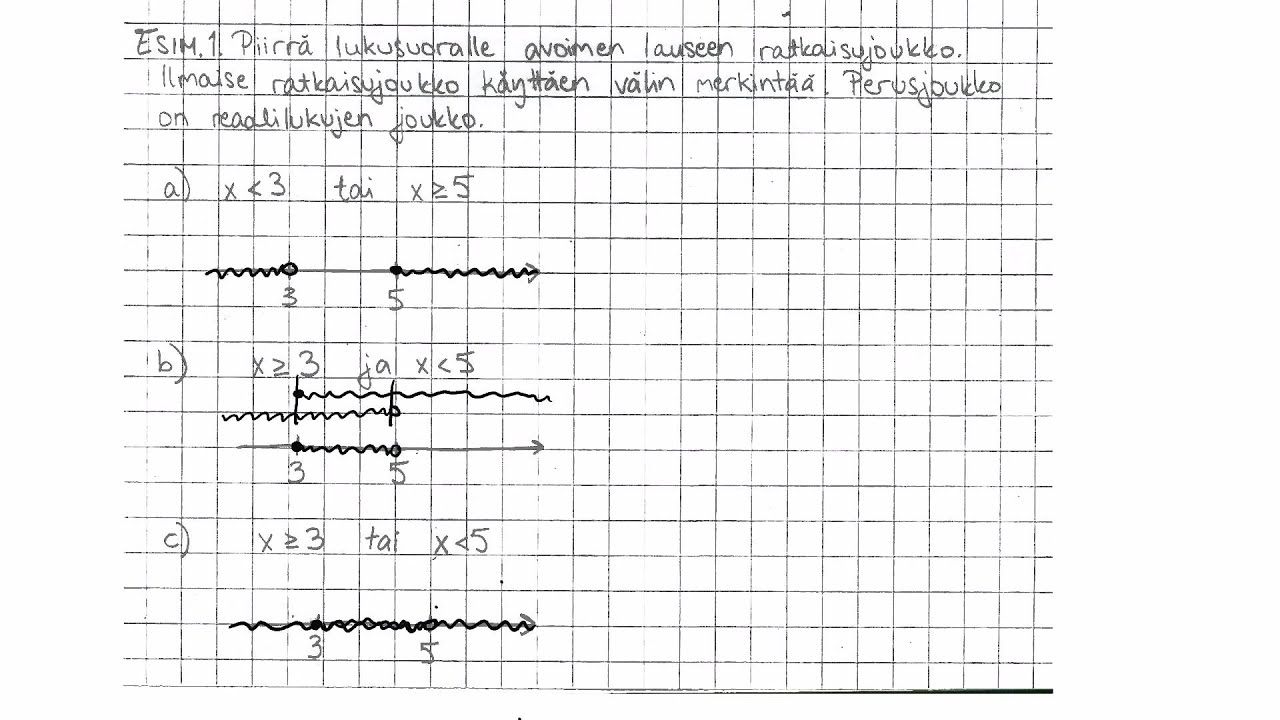 ESIM. 1. Piirrä lukusuoralle avoimen lauseen ratkaisujoukko.
Ilmaise ratkaisujoukko käyttäen välin merkintää. Perusjoukko
on reaalilukujen joukko.
a) x < 3 tai x ≥ 5
3 5
b) x ≥ 3 ja x < 5
3 5
c) x ≥ 3 tai x < 5
3 5